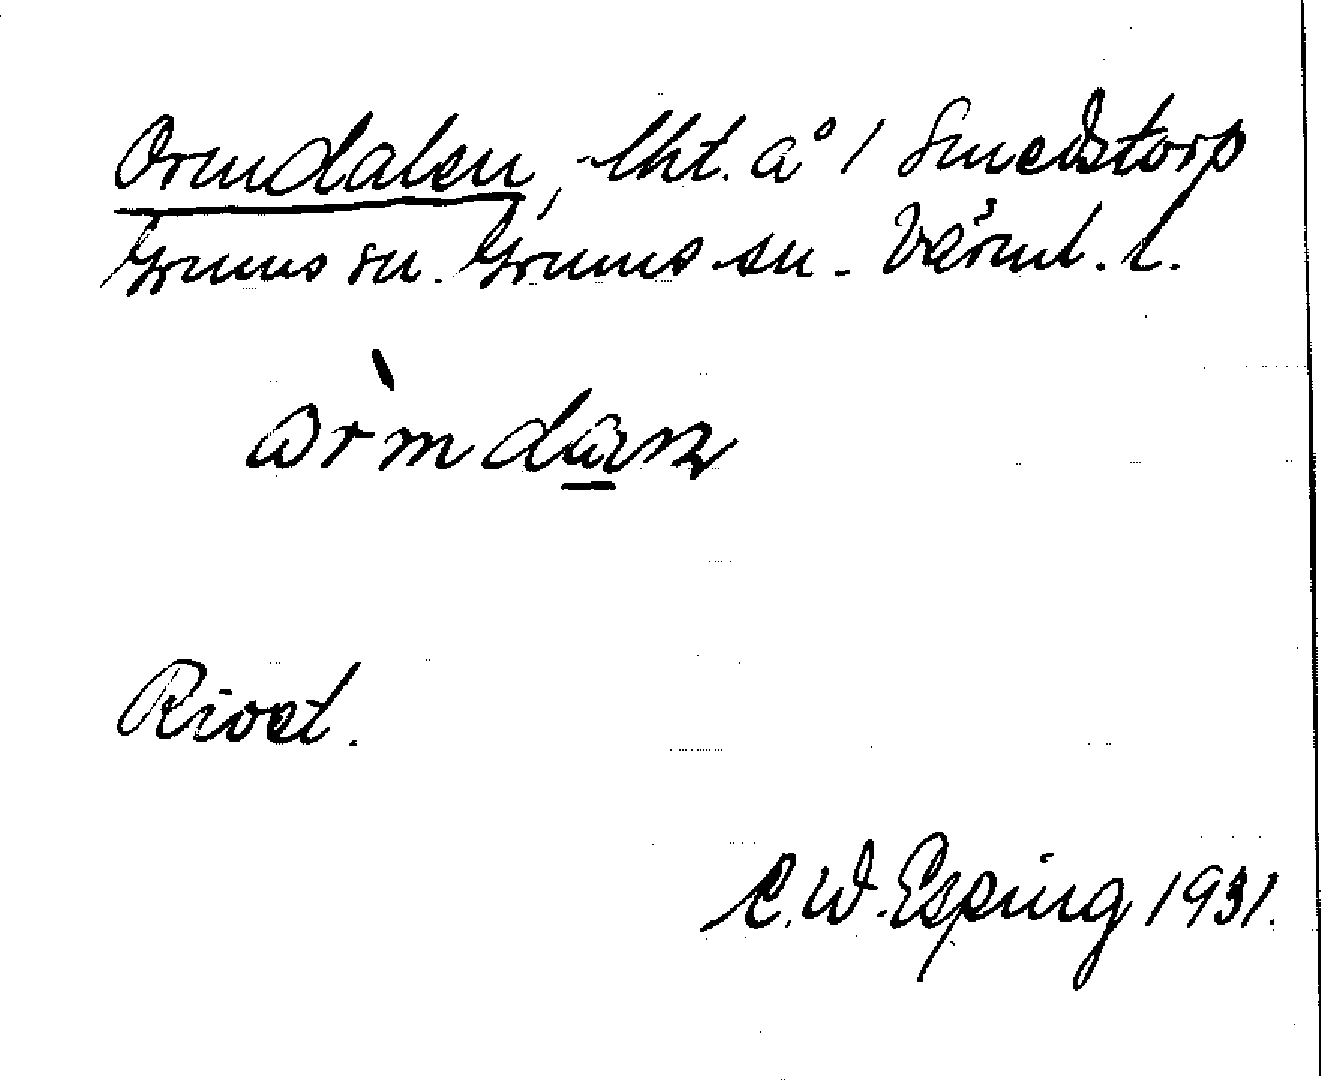 Ormdalen, lht. å 1 Smedstorp
Grums sn. Grums sn. Värml. l.
òrmdaɽn
Rivet.
C.W. Esping 1931.